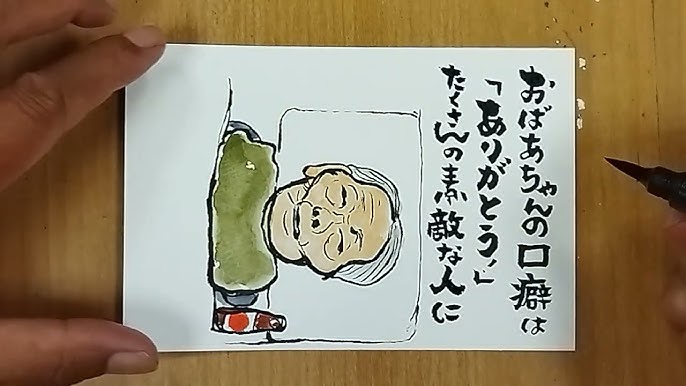 おばあちゃんの口癖は
「ありがとう」
たくさんの素敵な人に